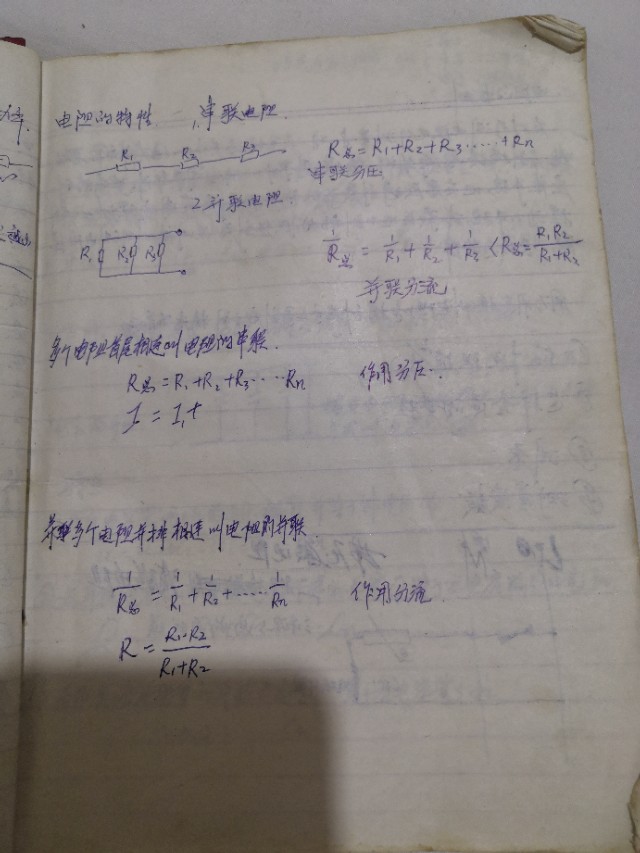 电阻的特性 一、1、串联电阻.
R₁ R₂ R₃
R总=R₁+R₂+R₃……+Rn
串联分压
2 并联电阻.
R₁ R₂ R₃
1/R总 = 1/R₁ + 1/R₂ + 1/R₃ < R总= R₁R₂/R₁+R₂
并联分流
多个电阻首尾相连叫电阻的串联.
R总=R₁+R₂+R₃……Rn 作用分压.
I = I₁t
并联多个电阻并排相连叫电阻的并联.
1/R总 = 1/R₁ + 1/R₂ +……1/Rn 作用分流.
R = R₁·R₂/R₁+R₂